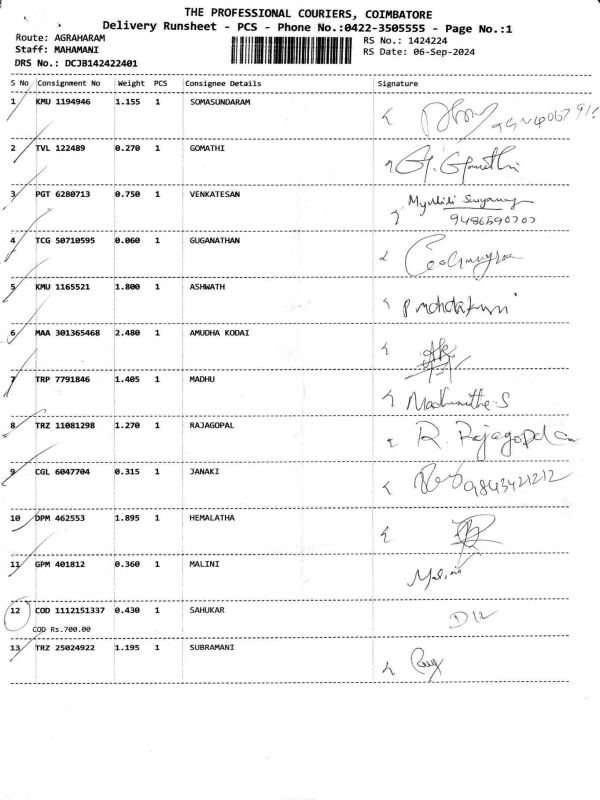 THE PROFESSIONAL COURIERS, COIMBATORE
Delivery Runsheet - PCS - Phone No.:0422-3505555 - Page No.:1
Route: AGRAHARAM
Staff: MAHAMANI
DRS No.: DCJB142422401
RS No.: 1424224
RS Date: 06-Sep-2024
S No Consignment No Weight PCS Consignee Details Signature
1 KMU 1194946 1.155 1 SOMASUNDARAM
2 TVL 122489 0.270 1 GOMATHI G. Gomathi
3 PGT 6280713 0.750 1 VENKATESAN
9486590707
4 TCG 50710595 0.060 1 GUGANATHAN
5 KMU 1165521 1.800 1 ASHWATH
6 MAA 301365468 2.480 1 AMUDHA KODAI
7 TRP 7791846 1.405 1 MADHU
8 TRZ 11081298 1.270 1 RAJAGOPAL R. Rajagopalan
9 CGL 6047704 0.315 1 JANAKI 9843421212
10 DPM 462553 1.895 1 HEMALATHA
11 GPM 401812 0.360 1 MALINI Malini
12 COD 1112151337 0.430 1 SAHUKAR
COD Rs.700.00
13 TRZ 25024922 1.195 1 SUBRAMANI